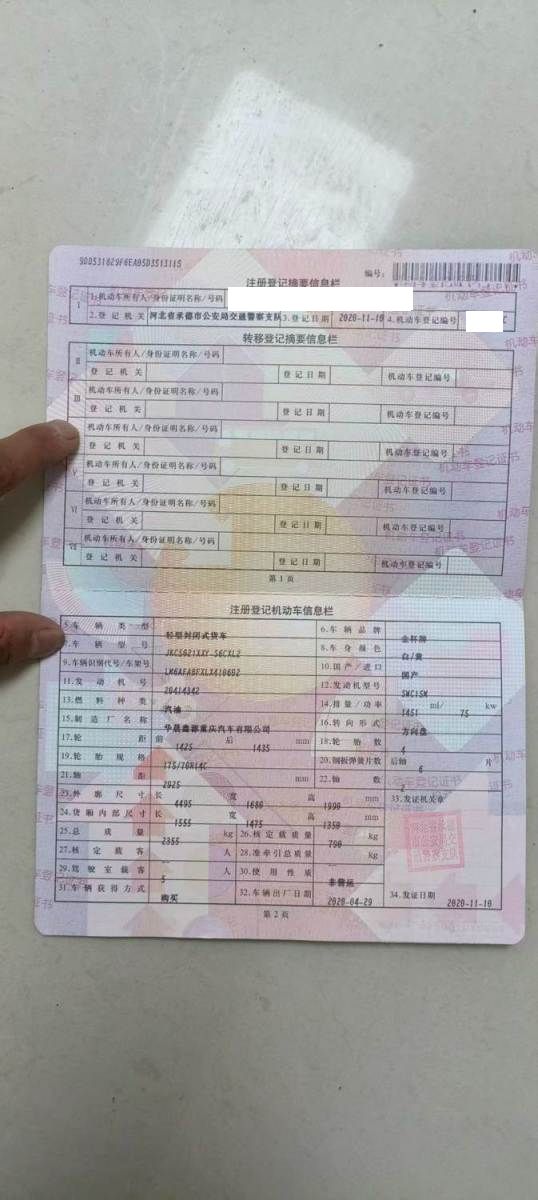 900531629F6EA95D3513115
编号:
注册登记摘要信息栏
I 1.机动车所有人/身份证明名称/号码
2.登记机关 河北省承德市公安局交通警察支队 3.登记日期 2020-11-10 4.机动车登记编号
转移登记摘要信息栏
II 机动车所有人/身份证明名称/号码
登记机关 登记日期 机动车登记编号
III 机动车所有人/身份证明名称/号码
登记机关 登记日期 机动车登记编号
机动车所有人/身份证明名称/号码
登记机关 登记日期 机动车登记编号
V 机动车所有人/身份证明名称/号码
登记机关 登记日期 机动车登记编号
VI 机动车所有人/身份证明名称/号码
登记机关 登记日期 机动车登记编号
VII 机动车所有人/身份证明名称/号码
登记机关 登记日期 机动车登记编号
第1页
注册登记机动车信息栏
5.车辆类型 轻型封闭式货车 6.车辆品牌 金杯牌
7.车辆型号 JKC5021XXY-S6CXL2 8.车身颜色 白/黄
9.车辆识别代号/车架号 10.国产/进口 国产
11.发动机号 20414342 12.发动机型号 SWC15M
13.燃料种类 汽油 14.排量/功率 1451 ml/ 75 kw
15.制造厂名称 华晨鑫源重庆汽车有限公司 16.转向形式 方向盘
17.轮距 前 1425 后 1435 mm 18.轮胎数 4
19.轮胎规格 175/70R14C 20.钢板弹簧片数 后轴 6 片
21.轴距 2925 mm 22.轴数 2
23.外廓尺寸 长 4495 宽 1680 高 1990 mm 33.发证机关章
24.货厢内部尺寸 长 1555 宽 1475 高 1350 mm
25.总质量 2355 kg 26.核定载质量 790 kg
27.核定载客 -- 人 28.准牵引总质量 -- kg
29.驾驶室载客 5 人 30.使用性质 非营运
31.车辆获得方式 购买 32.车辆出厂日期 2020-04-29 34.发证日期 2020-11-10
第2页